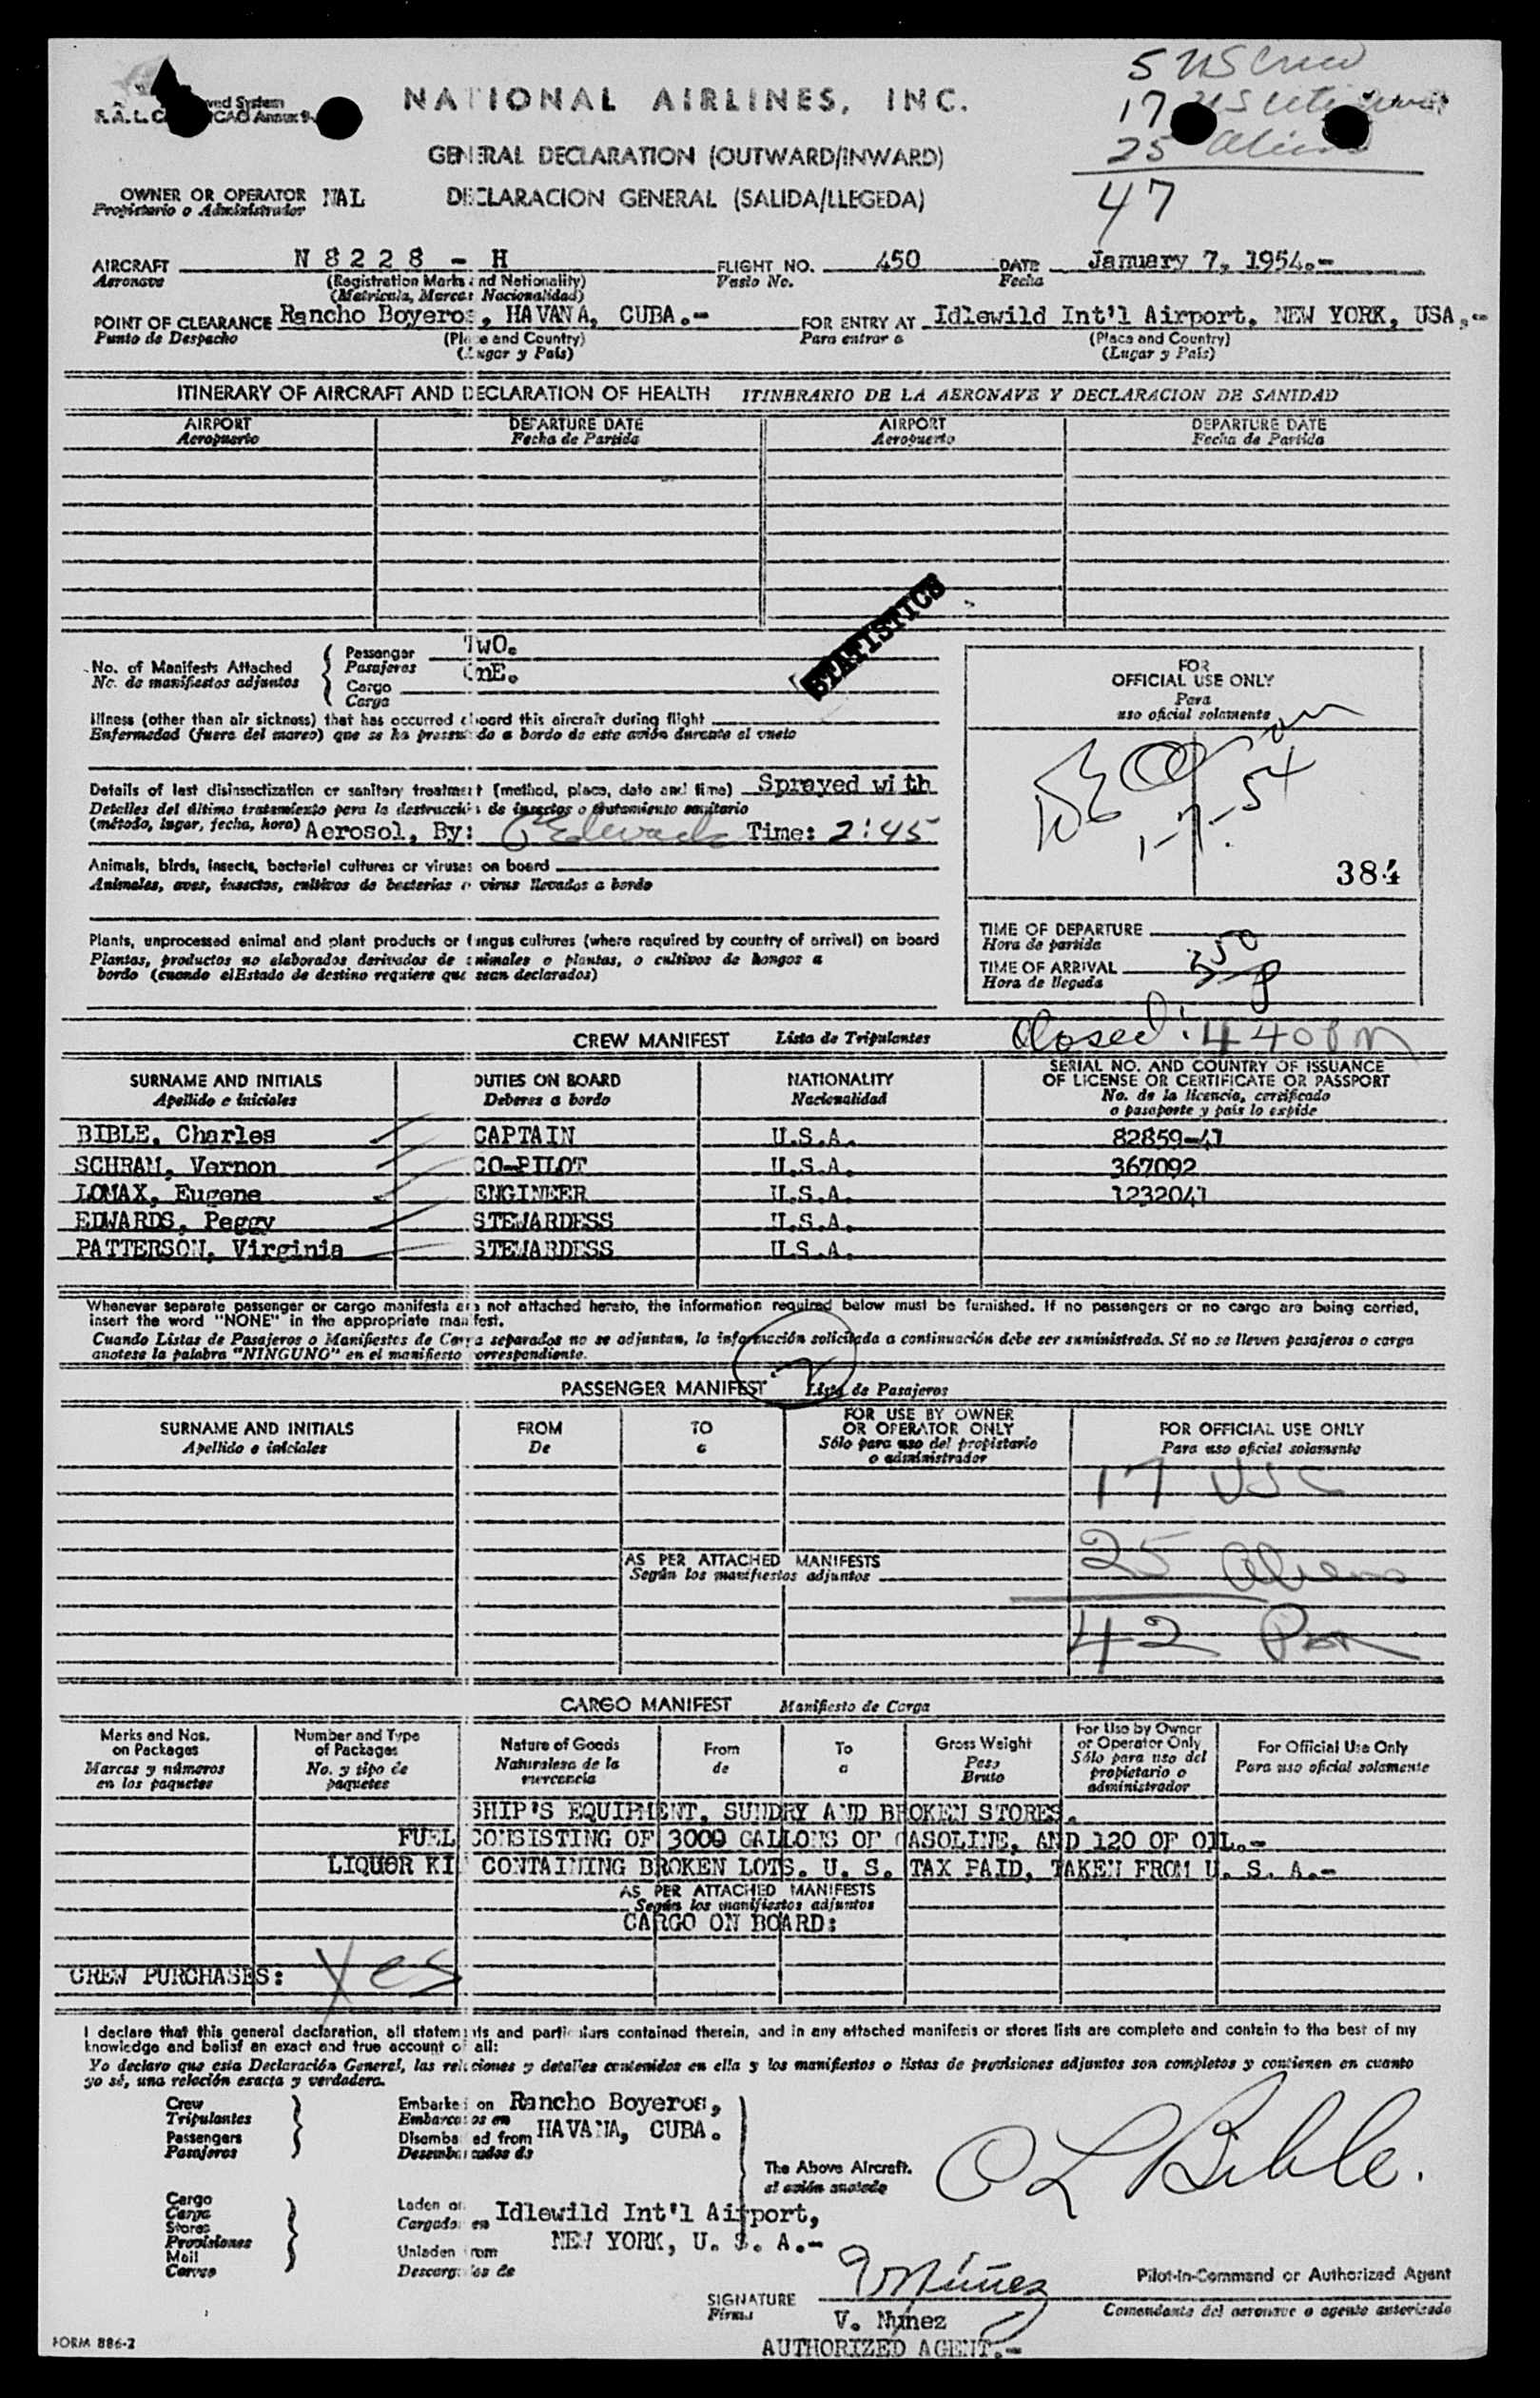 5 US Crew
17 US Citizens
25 Aliens
47
NATIONAL AIRLINES, INC.
GENERAL DECLARATION (OUTWARD/INWARD)
DECLARACION GENERAL (SALIDA/LLEGEDA)
OWNER OR OPERATOR NAL
Propietario o Administrador
AIRCRAFT N 8 2 2 8 - H FLIGHT NO. 450 DATE January 7, 1954.-
Aeronave (Registration Marks and Nationality) Vuelo No. Fecha
(Matricula, Marcas Nacionalidad)
POINT OF CLEARANCE Rancho Boyeros, HAVANA, CUBA.- FOR ENTRY AT Idlewild Int'l Airport, NEW YORK, USA.-
Punto de Despacho (Place and Country) Para entrar a (Place and Country)
(Lugar y País) (Lugar y País)
ITINERARY OF AIRCRAFT AND DECLARATION OF HEALTH ITINERARIO DE LA AERONAVE Y DECLARACION DE SANIDAD
AIRPORT DEPARTURE DATE AIRPORT DEPARTURE DATE
Aeropuerto Fecha de Partida Aeropuerto Fecha de Partida
STATISTICS
No. of Manifests Attached Passenger TwO.
No. de manifiestos adjuntos Pasajeros
Cargo OnE.
Carga
Illness (other than air sickness) that has occurred aboard this aircraft during flight
Enfermedad (fuera del mareo) que se ha presentado a bordo de este avión durante el vuelo
Details of last disinsectization or sanitary treatment (method, place, date and time) Sprayed with
Detalles del último tratamiento para la destrucción de insectos o tratamiento sanitario
(método, lugar, fecha, hora) Aerosol, By: P Edwards Time: 2:45
Animals, birds, insects, bacterial cultures or viruses on board
Animales, aves, insectos, cultivos de bacterias o virus llevados a bordo
Plants, unprocessed animal and plant products or fungus cultures (where required by country of arrival) on board
Plantas, productos no elaborados derivados de animales o plantas, o cultivos de hongos a
bordo (cuando elEstado de destino requiere que sean declarados)
FOR
OFFICIAL USE ONLY
Para
uso oficial solamente
1-7-54
384
TIME OF DEPARTURE
Hora de partida
TIME OF ARRIVAL 350
Hora de llegada
Closed: 440 PM
CREW MANIFEST Lista de Tripulantes
SURNAME AND INITIALS DUTIES ON BOARD NATIONALITY SERIAL NO. AND COUNTRY OF ISSUANCE
OF LICENSE OR CERTIFICATE OR PASSPORT
Apellido e iniciales Deberes a bordo Nacionalidad No. de la licencia, certificado
o pasaporte y país lo expide
BIBLE, Charles CAPTAIN U.S.A. 82859-41
SCHRAM, Vernon CO-PILOT U.S.A. 367092
LOMAX, Eugene ENGINEER U.S.A. 1232041
EDWARDS, Peggy STEWARDESS U.S.A.
PATTERSON, Virginia STEWARDESS U.S.A.
Whenever separate passenger or cargo manifests are not attached hereto, the information required below must be furnished. If no passengers or no cargo are being carried,
insert the word "NONE" in the appropriate manifest.
Cuando Listas de Pasajeros o Manifiestos de Carga separados no se adjuntan, la información solicitada a continuación debe ser suministrada. Si no se lleven pasajeros o carga
anotese la palabra "NINGUNO" en el manifiesto correspondiente.
PASSENGER MANIFEST Lista de Pasajeros
SURNAME AND INITIALS FROM TO FOR USE BY OWNER
OR OPERATOR ONLY FOR OFFICIAL USE ONLY
Apellido e iniciales De a Sólo para uso del propietario
o administrador Para uso oficial solamente
17 USC
AS PER ATTACHED MANIFESTS
Según los manifiestos adjuntos
25 Aliens
42 Pax
CARGO MANIFEST Manifiesto de Carga
Marks and Nos.
on Packages
Marcas y números
en los paquetes
Number and Type
of Packages
No. y tipo de
paquetes
Nature of Goods
Naturaleza de la
mercancia
From
de
To
a
Gross Weight
Peso
Bruto
For Use by Owner
or Operator Only
Sólo para uso del
propietario o
administrador
For Official Use Only
Para uso oficial solamente
SHIP'S EQUIPMENT, SUNDRY AND BROKEN STORES.
FUEL CONSISTING OF 3000 GALLONS OF GASOLINE, AND 120 OF OIL.-
LIQUOR KIT CONTAINING BROKEN LOTS. U. S. TAX PAID, TAKEN FROM U. S. A.-
AS PER ATTACHED MANIFESTS
Según los manifiestos adjuntos
CARGO ON BOARD:
CREW PURCHASES: Yes
I declare that this general declaration, all statements and particulars contained therein, and in any attached manifests or stores lists are complete and contain to the best of my
knowledge and belief an exact and true account of all:
Yo declaro que esta Declaración General, las relaciones y detalles contenidos en ella y los manifiestos o listas de provisiones adjuntos son completos y contienen en cuanto
yo sé, una relación exacta y verdadera.
Crew
Tripulantes
Passengers
Pasajeros
Embarked on Rancho Boyeros,
Embarcados en
Disembarked from HAVANA, CUBA.
Desembarcados de
The Above Aircraft.
el avión anotado
C L Bible.
Cargo
Carga
Stores
Provisiones
Mail
Correo
Laden on Idlewild Int'l Airport,
Cargados en
NEW YORK, U. S. A.-
Unladen from
Descargados de
V Núñez
Pilot-In-Command or Authorized Agent
SIGNATURE
Firma
Comandante del aeronave o agente autorizado
V. Nuñez
AUTHORIZED AGENT.-
FORM 886-2